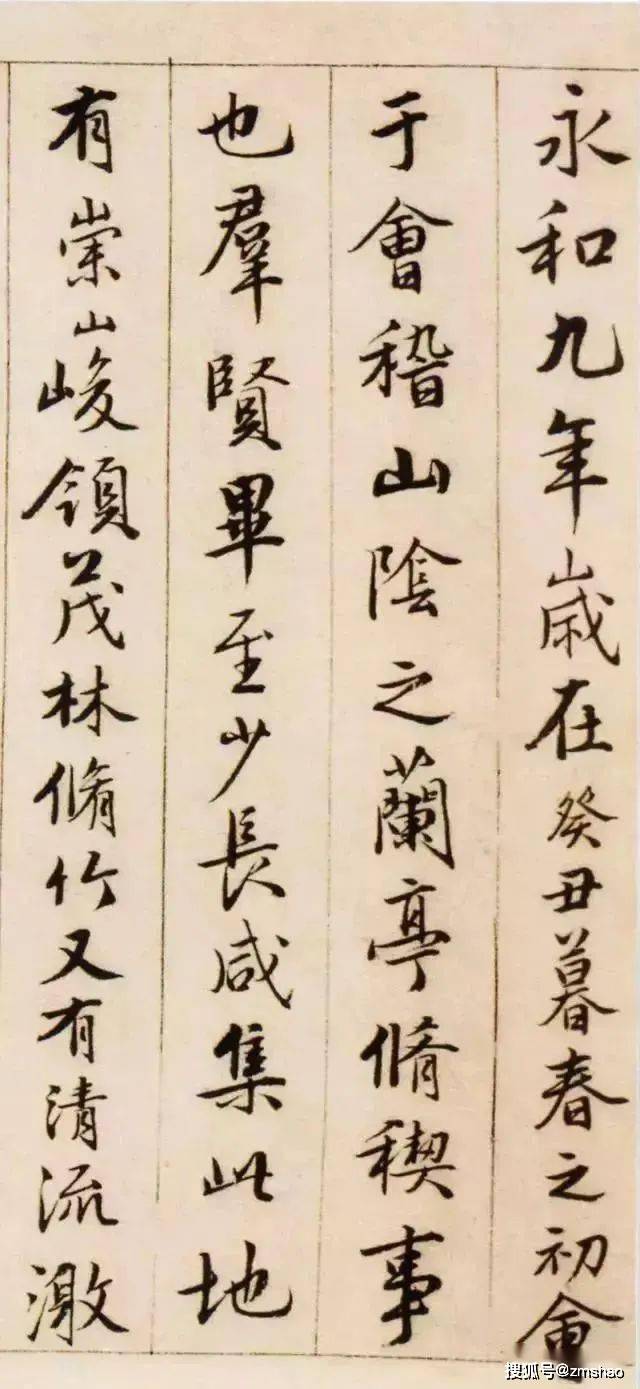 永和九年歲在癸丑暮春之初會
于會稽山陰之蘭亭脩稧事
也羣賢畢至少長咸集此地
有崇山峻領茂林脩竹又有清流激
搜狐号@zmshao